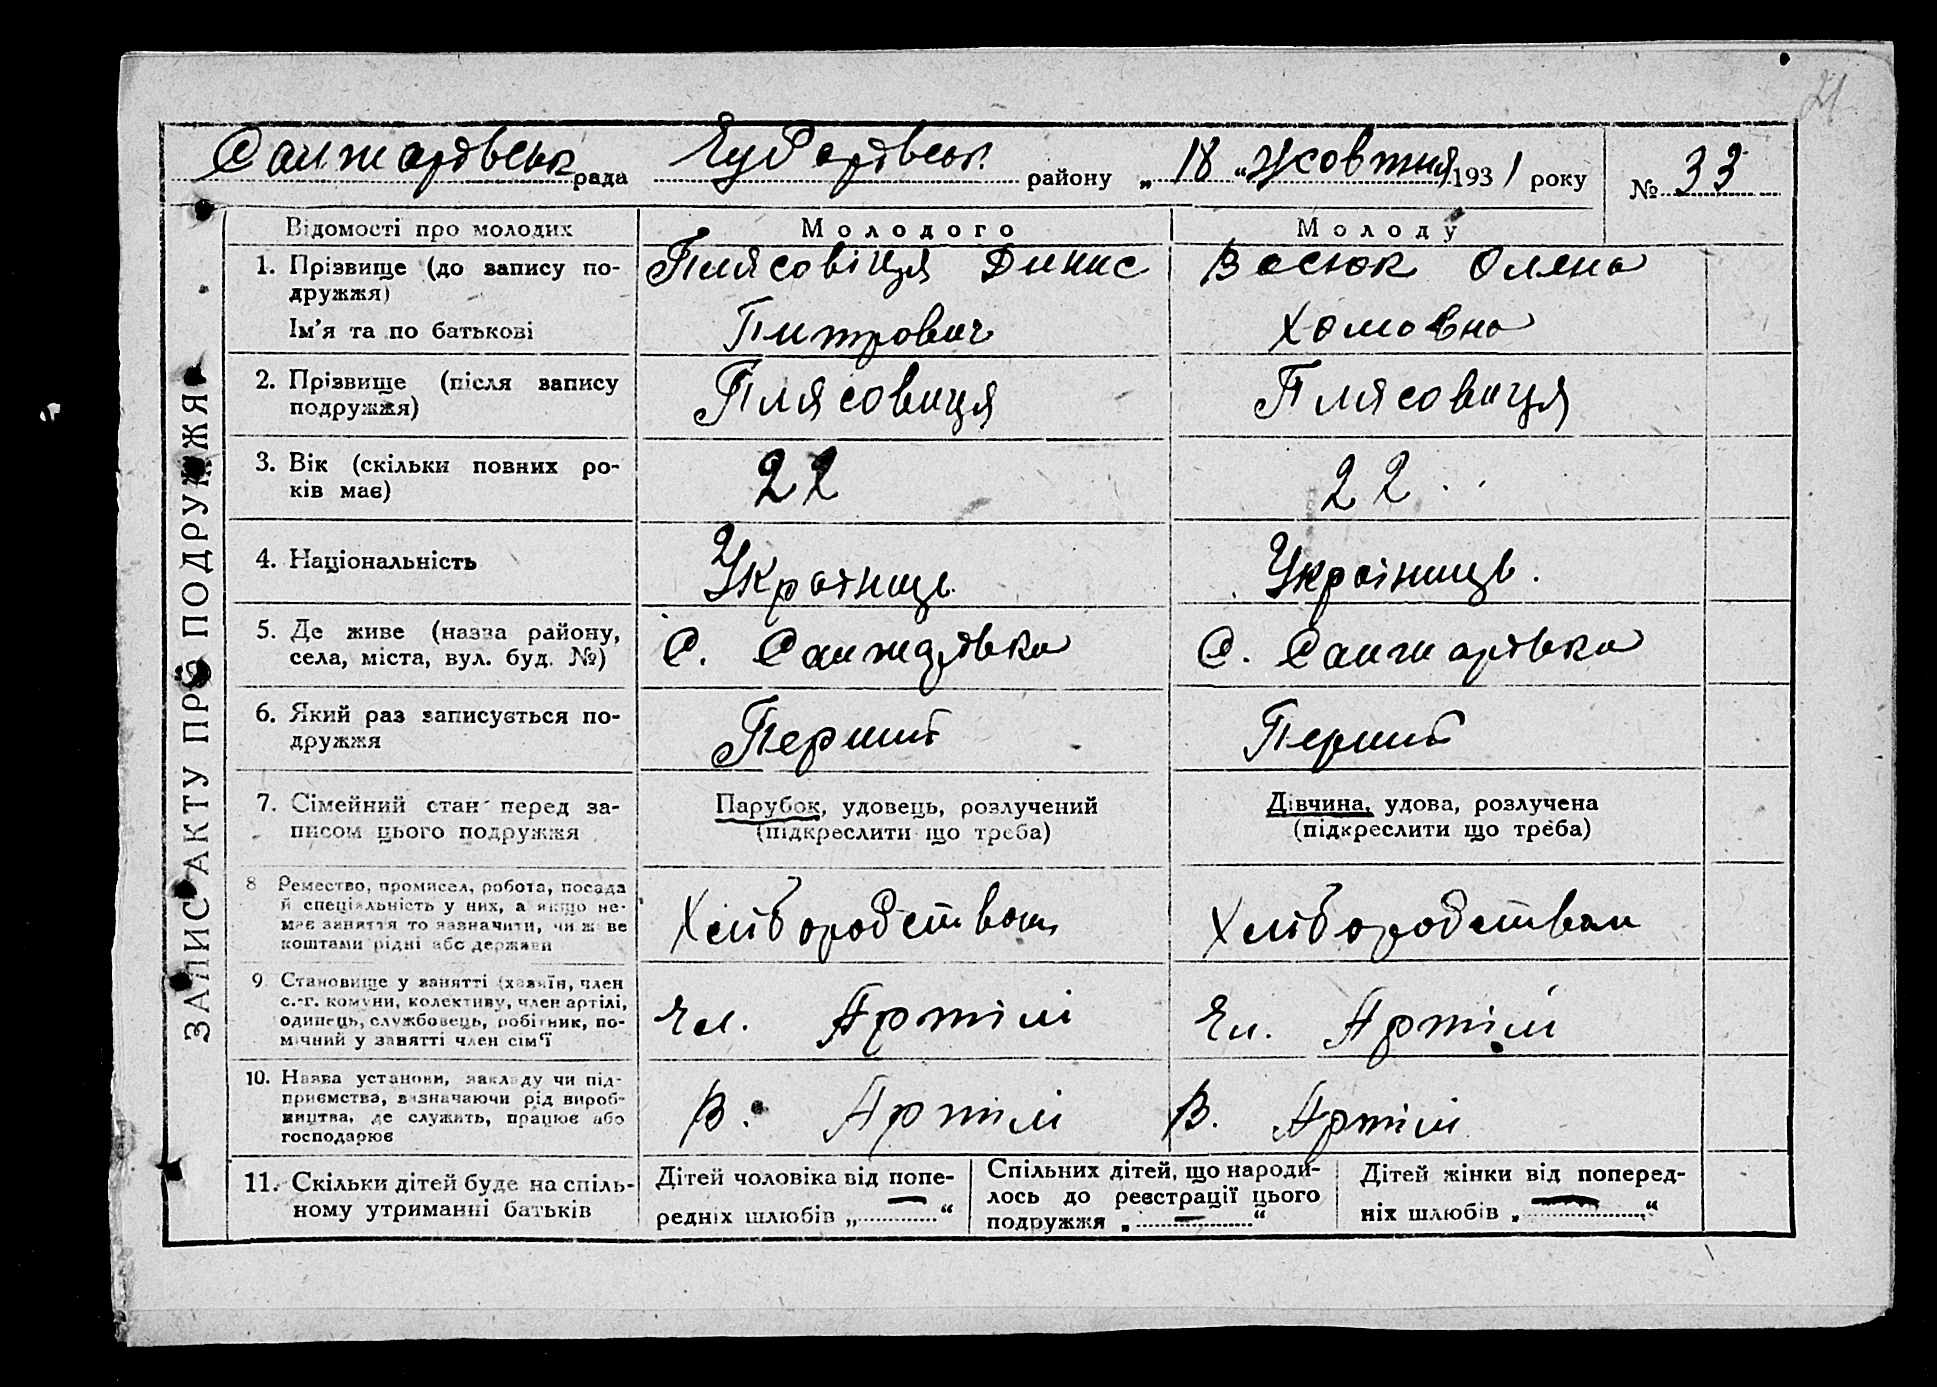 21
Санжарівськ рада Чубарівськ району „ 18 “ жовтня 1931 року № 33
ЗАПИС АКТУ ПРО ПОДРУЖЖЯ
Відомості про молодих Молодого Молоду
1. Прізвище (до запису по- Плясовіця Динис Васюк Олена
дружжя)
Ім'я та по батькові Питрович Хомовна
2. Прізвище (після запису Плясовиця Плясовиця
подружжя)
3. Вік (скільки повних ро- 22 22
ків має)
4. Національність Українець Українець.
5. Де живе (назва району, С. Санжарівка С. Санжарівка
села, міста, вул. буд. №)
6. Який раз записується по- Перший Перший
дружжя
7. Сімейний стан перед за- Парубок, удовець, розлучений Дівчина, удова, розлучена
писом цього подружжя (підкреслити що треба) (підкреслити що треба)
8 Ремество, промисел, робота, посада
й спеціяльність у них, а якщо не-
має заняття то зазначити, чи живе Хлібородством Хлібородством
коштами рідні або держави
9. Становище у занятті (хазяїн, член
с.-г. комуни, колективу, член артілі, Чл. Артілі Чл. Артілі
одинець, службовець, робітник, по-
мічний у занятті член сім'ї
10. Назва установи, закладу чи під-
приємства, зазначаючи рід вироб- В. Артілі В. Артілі
ництва, де служить, працює або
господарює
11. Скільки дітей буде на спіль-
ному утриманні батьків
Дітей чоловіка від попе-
редніх шлюбів „ — “
Спільних дітей, що народи-
лось до реєстрації цього
подружжя „ — “
Дітей жінки від поперед-
ніх шлюбів „ — “